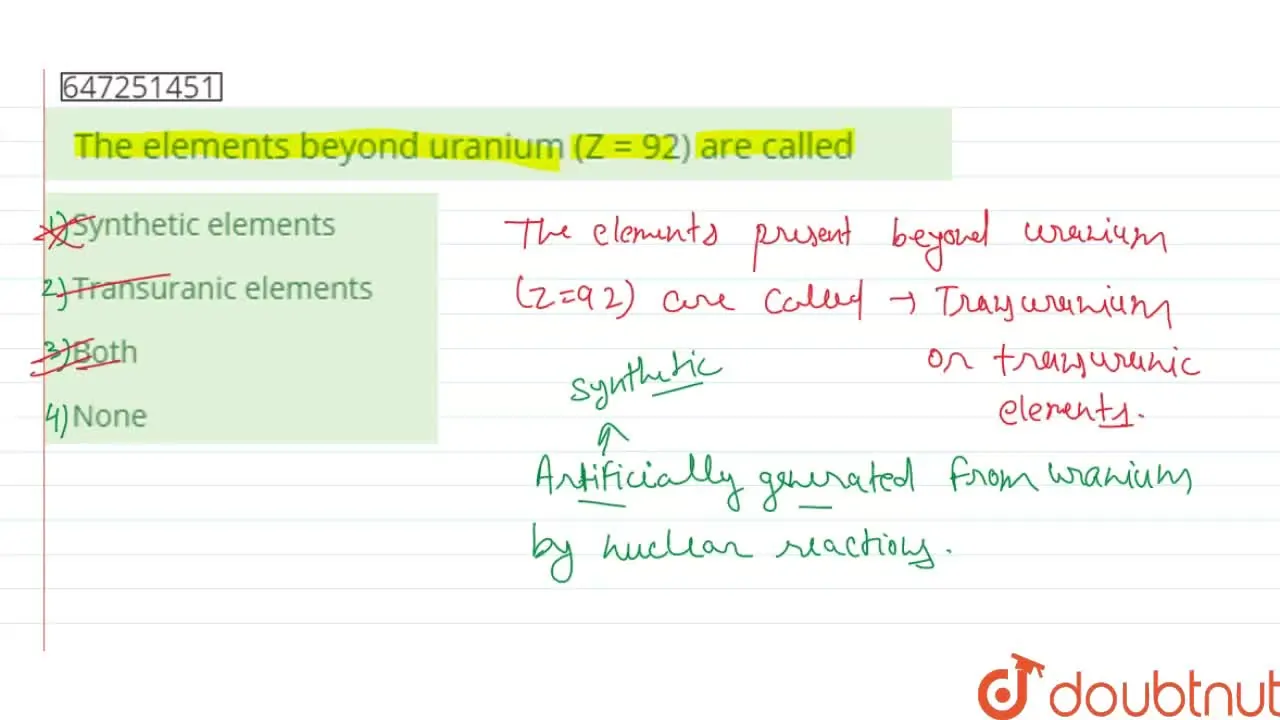 647251451
The elements beyond uranium (Z = 92) are called
1) Synthetic elements
2) Transuranic elements
3) Both
4) None
The elements present beyond uranium
(Z=92) are called → Transuranium
or transuranic
elements.
synthetic
Artificially generated from uranium
by nuclear reactions.
doubtnut